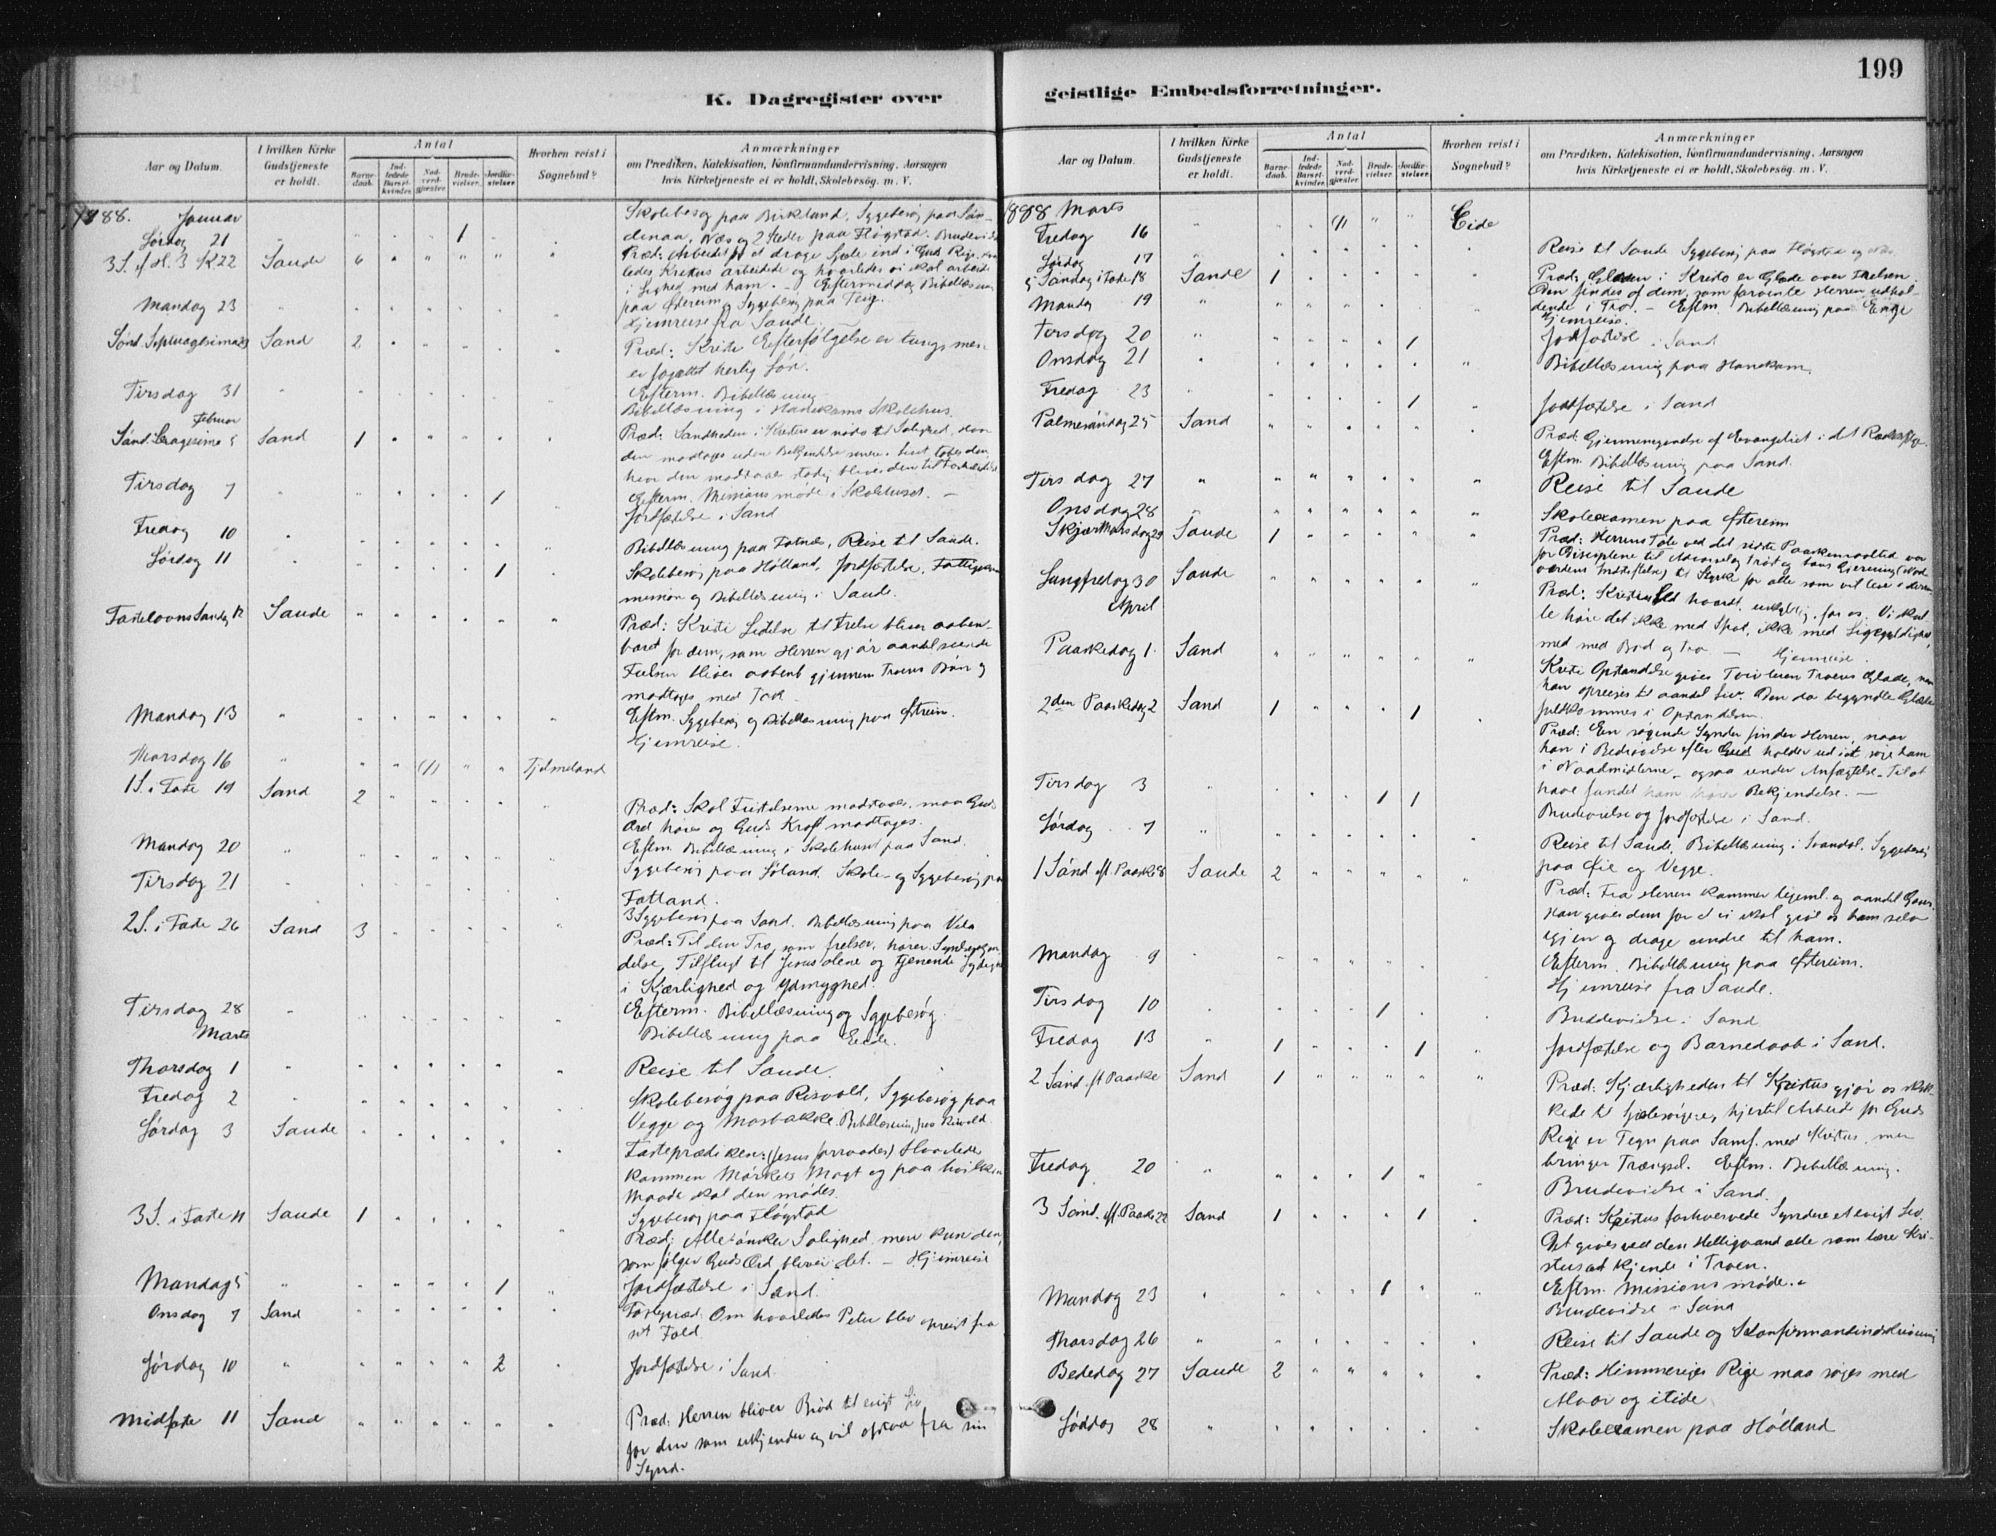 199
K. Dagregister over geistlige Embedsforretninger.
Aar og Datum.
I hvilken Kirke Gudstjeneste er holdt.
Antal
Barnedaab.
Indledede Barselkvinder.
Nadverdgjæster.
Brudevielser.
Jordfæstelser.
Hvorhen reist i Sognebud?
Anmærkninger
om Prædiken, Katekisation, Konfirmandundervisning, Aarsagen
hvis Kirketjeneste ei er holdt, Skolebesøg. m. V.
1888. Januar
Lørdag 21 1 Skolebesøg paa Birkland, Sygebesøg paa
Næs og 2 Steder paa Fløgstad. Brudevielse
22 Saude 6 Præd: Arbeidet at drage Sjæle ind i Guds Rige.
ledes Kristus arbeidede og hvorledes vi skal arbeide
i Lighed med ham. - Eftermiddag Bibellæsning
paa Østereim og Sygebesøg paa Teig.
Mandag 23 Hjemreise fra Saude.
Sønd. Septuagesima Sand 2 Præd: Kristi Efterfølgelse er tung, men
herlig Løn.
Efterm. Bibellæsning
Tirsdag 31 Bibellæsning i Hanekams Skolehus.
Februar
Sønd. Sexagesima 5 Sand 1 Præd: Sandheden i Kristus er nødv. til Salighed,
Efterm. Missionsmøde i Skolehuset. -
Tirsdag 7 1 Jordfæstelse i Sand
Fredag 10 Bibellæsning paa Fatnæs, Reise til Saude.
Lørdag 11 1 Skolebesøg paa Hølland, Jordfæstelse,
og Bibellæsning i Saude.
Fastelavns Søndag 12 Saude Præd: Kristi Lidelse til Frelse bliver aaben-
baret for dem, som Herren gjør aandel. seende
Frelsen bliver aabent gjennem Troens Bøn og
modtages med Tak.
Eftm. Sygebesøg og Bibellæsning paa Østreim.
Mandag 13 Hjemreise.
Thorsdag 16 (1) Tjelmeland
1 S. i Faste 19 Sand 2 Præd: Skal Fristelserne modstaaes, maa Guds
Ord høres og Guds Kraft modtages.
Eftm. Bibellæsning i Skolehuset paa Sand.
Mandag 20 Sygebesøg paa Løland. Skole- og Sygebesøg paa
Fatland.
Tirsdag 21 3 Sygebesøg paa Sand. Bibellæsning paa Vela
2 S. i Faste 26 Sand 3 Præd: Til den Tro, som frelser, hører
Tilflugt til Jesus alene og tjenende
i Kjærlighed og Ydmyghed.
Efterm. Bibellæsning og Sygebesøg.
Tirsdag 28 Bibellæsning paa Eide.
Marts
Thorsdag 1 Reise til Saude.
Fredag 2 Skolebesøg paa Risvold, Sygebesøg paa
Vegge og Mosbakke. Bibellæsning paa Risvold.
Lørdag 3 Saude Fasteprædiken: (Jesus forraades) Hvorledes
kommer Mørkets Magt og paa hvilken
Maade skal den mødes.
Sygebesøg paa Fløgstad
3 S. i Faste 4 Saude 1 Præd: Alle ønsker Salighed, men kun den,
som følger Guds Ord, bliver det. - Hjemreise
Mandag 5 1 Jordfæstelse i Sand.
Onsdag 7 Sand Fastepræd: Om hvorledes Peter blev opreist fra
sit Fald.
Lørdag 10 2 Jordfæstelse i Sand
Midfaste 11 Sand Præd: Herren bliver Brød til evigt Liv
for den som erkjender og vil opstaa fra sin
Synd.
Aar og Datum.
I hvilken Kirke Gudstjeneste er holdt.
Antal
Barnedaab.
Indledede Barselkvinder.
Nadverdgjæster.
Brudevielser.
Jordfæstelser.
Hvorhen reist i Sognebud?
Anmærkninger
om Prædiken, Katekisation, Konfirmandundervisning, Aarsagen
hvis Kirketjeneste ei er holdt, Skolebesøg. m. V.
1888 Marts
Fredag 16 (1) Eide
Lørdag 17 Reise til Saude Sygebesøg paa Fløgstad og
Søndag i Faste 18 Saude 1 Præd: Glæden i Kristo er Glæde over Frelsen.
Den findes af dem, som forvente Herren udhol-
dende i Tro. - Eftm. Bibellæsning paa Enge
Mandag 19 Hjemreise.
Tirsdag 20 1 Jordfæstelse i Sand
Onsdag 21 Bibellæsning paa Hanekam.
Fredag 23 1 Jordfæstelse i Sand
Palmesøndag 25 Sand Præd: Gjennemgaaelse af Evangeliet
Eftm. Bibellæsning paa Sand.
Tirsdag 27 Reise til Saude
Onsdag 28 Skoleexamen paa Østereim
Skjærthorsdag 29 Saude 1 Præd: Herrens Tale ved det sidste Paaskemaaltid var
for Disciplene til Advarsel og Trøst og hans Gjerning (Nad-
verdens Indstiftelse) til Styrke for alle som vil leve i
Langfredag 30 Saude Præd: Kristus led haardt, uskyldig, for os. Vi skal
høre det ikke med Spot, ikke med Ligegyldighed,
men med Bod og Tro - Hjemreise.
April
Paaskedag 1. Sand Kristi Opstandelse giver Tvivleren Troens Glæde, naar
han opreises til aandel. Liv. Den da begyndte Glæde
fuldkommes i Opstandelsen.
2den Paaskedag 2 Sand 1 1 Præd: En søgende Synder finder Herren, naar
han i Bedrøvelse efter Gud holder ud i at søge ham
i Naademidlerne - ogsaa under Anfægtelse - Til at
have fundet ham hører Bekjendelse. -
Tirsdag 3 1 1 Brudevielse og Jordfæstelse i Sand.
Lørdag 7 Reise til Saude, Bibellæsning i Svandal. Sygebesøg
paa Øie og Vegge.
1 Sønd. eft. Paaske 8 Saude 2 Præd: Fra Herren kommer legeml. og aandel. Gaver.
Han giver dem for at vi skal give os ham selv
igjen og drage andre til ham.
Efterm. Bibellæsning paa Østereim.
Mandag 9 Hjemreise fra Saude.
Tirsdag 10 1 Brudevielse i Sand
Fredag 13 1 1 Jordfæstelse og Barnedaab i Sand.
2 Sønd. eft. Paaske Sand 1 Præd: Kjærligheden til Kristus gjør os skik-
kede til Sjælesørgere, hjertel. Arbeide for Guds
Rige er Tegn paa Samf. med Kristus, men
bringer Trængsel. Eftm. Bibellæsning.
Fredag 20 1 Brudevielse i Sand.
3 Sønd. eft. Paaske 22 Sand 1 1 Præd: Kristus forhvervede Syndere et evigt Liv.
Det gives ved den Helligaand alle som lære Kri-
stus at kjende i Troen.
Eftm. Missionsmøde. -
Mandag 23 1 Brudevielse i Sand
Thorsdag 26 Reise til Saude og Konfirmandindskrivning
Bededag 27 Saude 2 Præd: Himmeriges Rige maa søges med
Alvor og itide
Lørdag 28 Skoleexamen paa Hølland